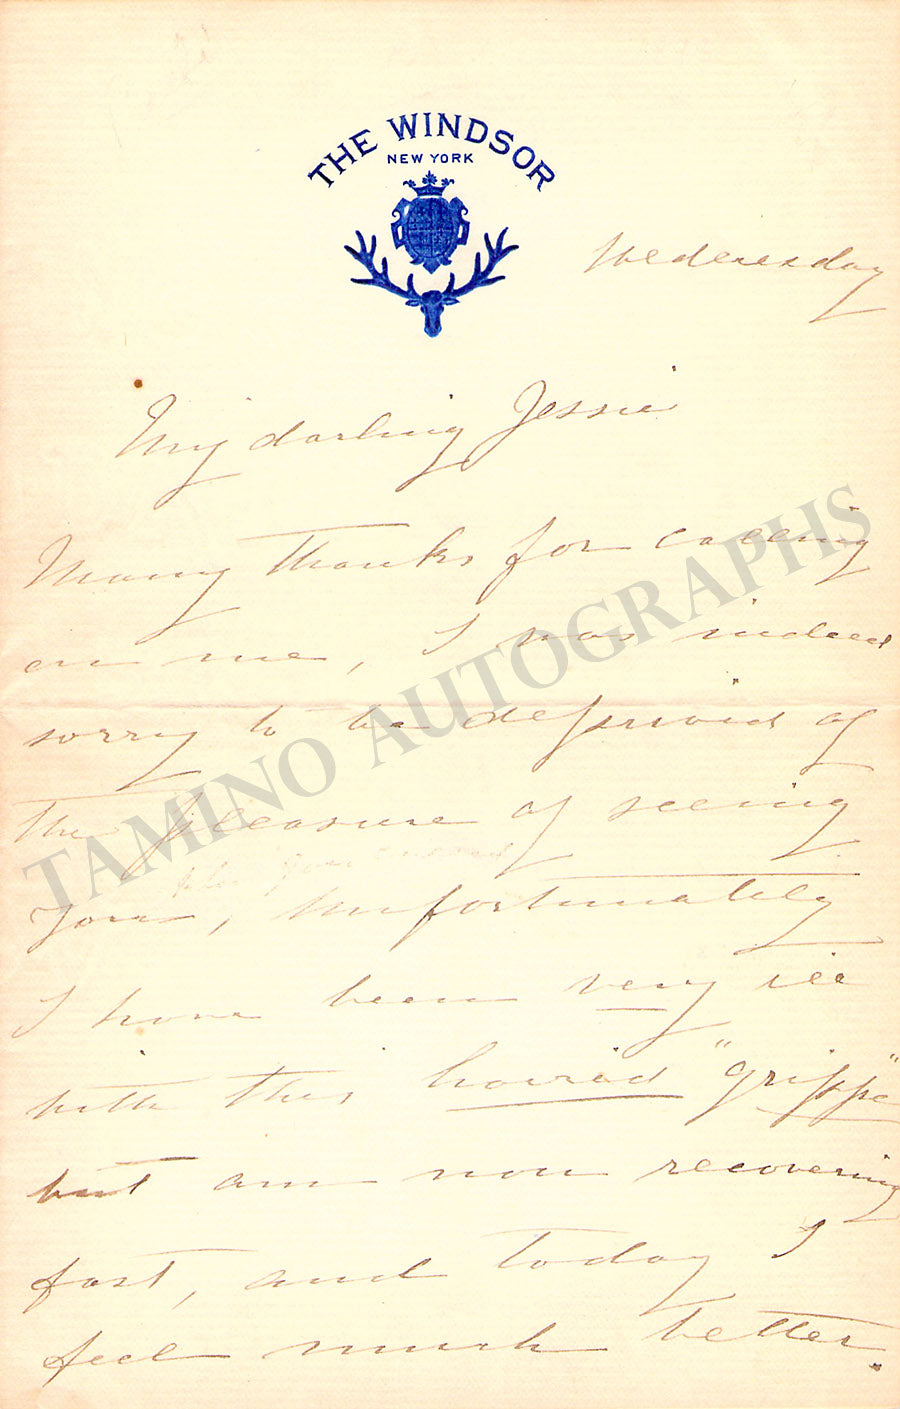 THE WINDSOR
NEW YORK
Wednesday
My darling Jessie
Many thanks for calling
on me, I was indeed
sorry to be deprived of
the pleasure of seeing
you, Unfortunately
I have been very ill
with this horrid "grippe"
but am now recovering
fast, and today I
feel much better.
TAMINO AUTOGRAPHS